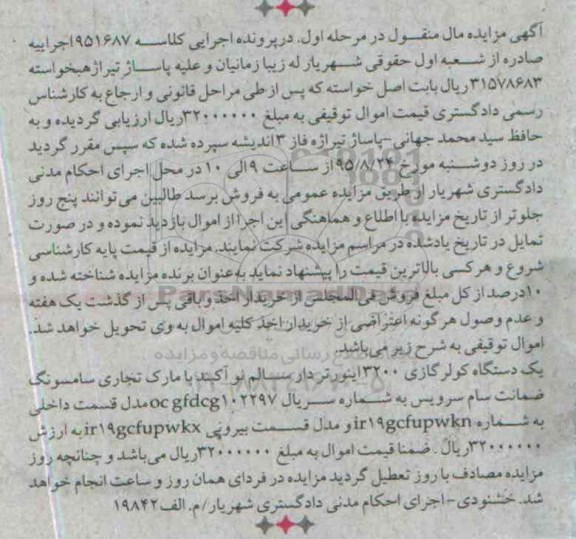 آگهی مزایده مال منقول در مرحله اول. در پرونده اجرایی کلاسه ۹۵۱۶۸۷اجراییه
صادره از شعبه اول حقوقی شهریار له زیبا زمانیان و علیه پاساژ تیراژهبخواسته
۳۱۵۷۸۶۸۳ریال بابت اصل خواسته که پس از طی مراحل قانونی و ارجاع به کارشناس
رسمی دادگستری قیمت اموال توقیفی به مبلغ ۳۲۰۰۰۰۰۰ریال ارزیابی گردیده و به
حافظ سید محمد جهانی-پاساژ تیراژه فاز۳اندیشه سپرده شده که سپس مقرر گردید
در روز دوشنبه مورخ ۹۵/۸/۲۴از ساعت ۹الی ۱۰در محل اجرای احکام مدنی
دادگستری شهریار از طریق مزایده عمومی به فروش برسد طالبین می‌توانند پنج روز
جلوتر از تاریخ مزایده با اطلاع و هماهنگی این اجرا از اموال بازدید نموده و در صورت
تمایل در تاریخ یادشده در مراسم مزایده شرکت نمایند. مزایده از قیمت پایه کارشناسی
شروع و هرکسی بالاترین قیمت را پیشنهاد نماید به‌عنوان برنده مزایده شناخته شده و
۱۰درصد از کل مبلغ فروش فی‌المجلس از خریدار اخذ و باقی پس از گذشت یک هفته
و عدم وصول هرگونه اعتراضی از خریدار اخذ کلیه اموال به وی تحویل خواهد شد.
اموال توقیفی به شرح زیر می‌باشد.
یک دستگاه کولر گازی ۳۲۰۰اینورتر دار سالم نو آکبند با مارک تجاری سامسونگ
ضمانت سام سرویس به شماره سریال oc gfdcg۱۰۲۲۹۷مدل قسمت داخلی
به شماره ir۱۹gcfupwknو مدل قسمت بیرونی ir۱۹gcfupwkxبه ارزش
۳۲۰۰۰۰۰۰ریال . ضمنا قیمت اموال به مبلغ ۳۲۰۰۰۰۰۰ریال می‌باشد و چنانچه روز
مزایده مصادف با روز تعطیل گردید مزایده در فردای همان روز و ساعت انجام خواهد
شد. خشنودی-اجرای احکام مدنی دادگستری شهریار/م.الف۱۹۸۴۲